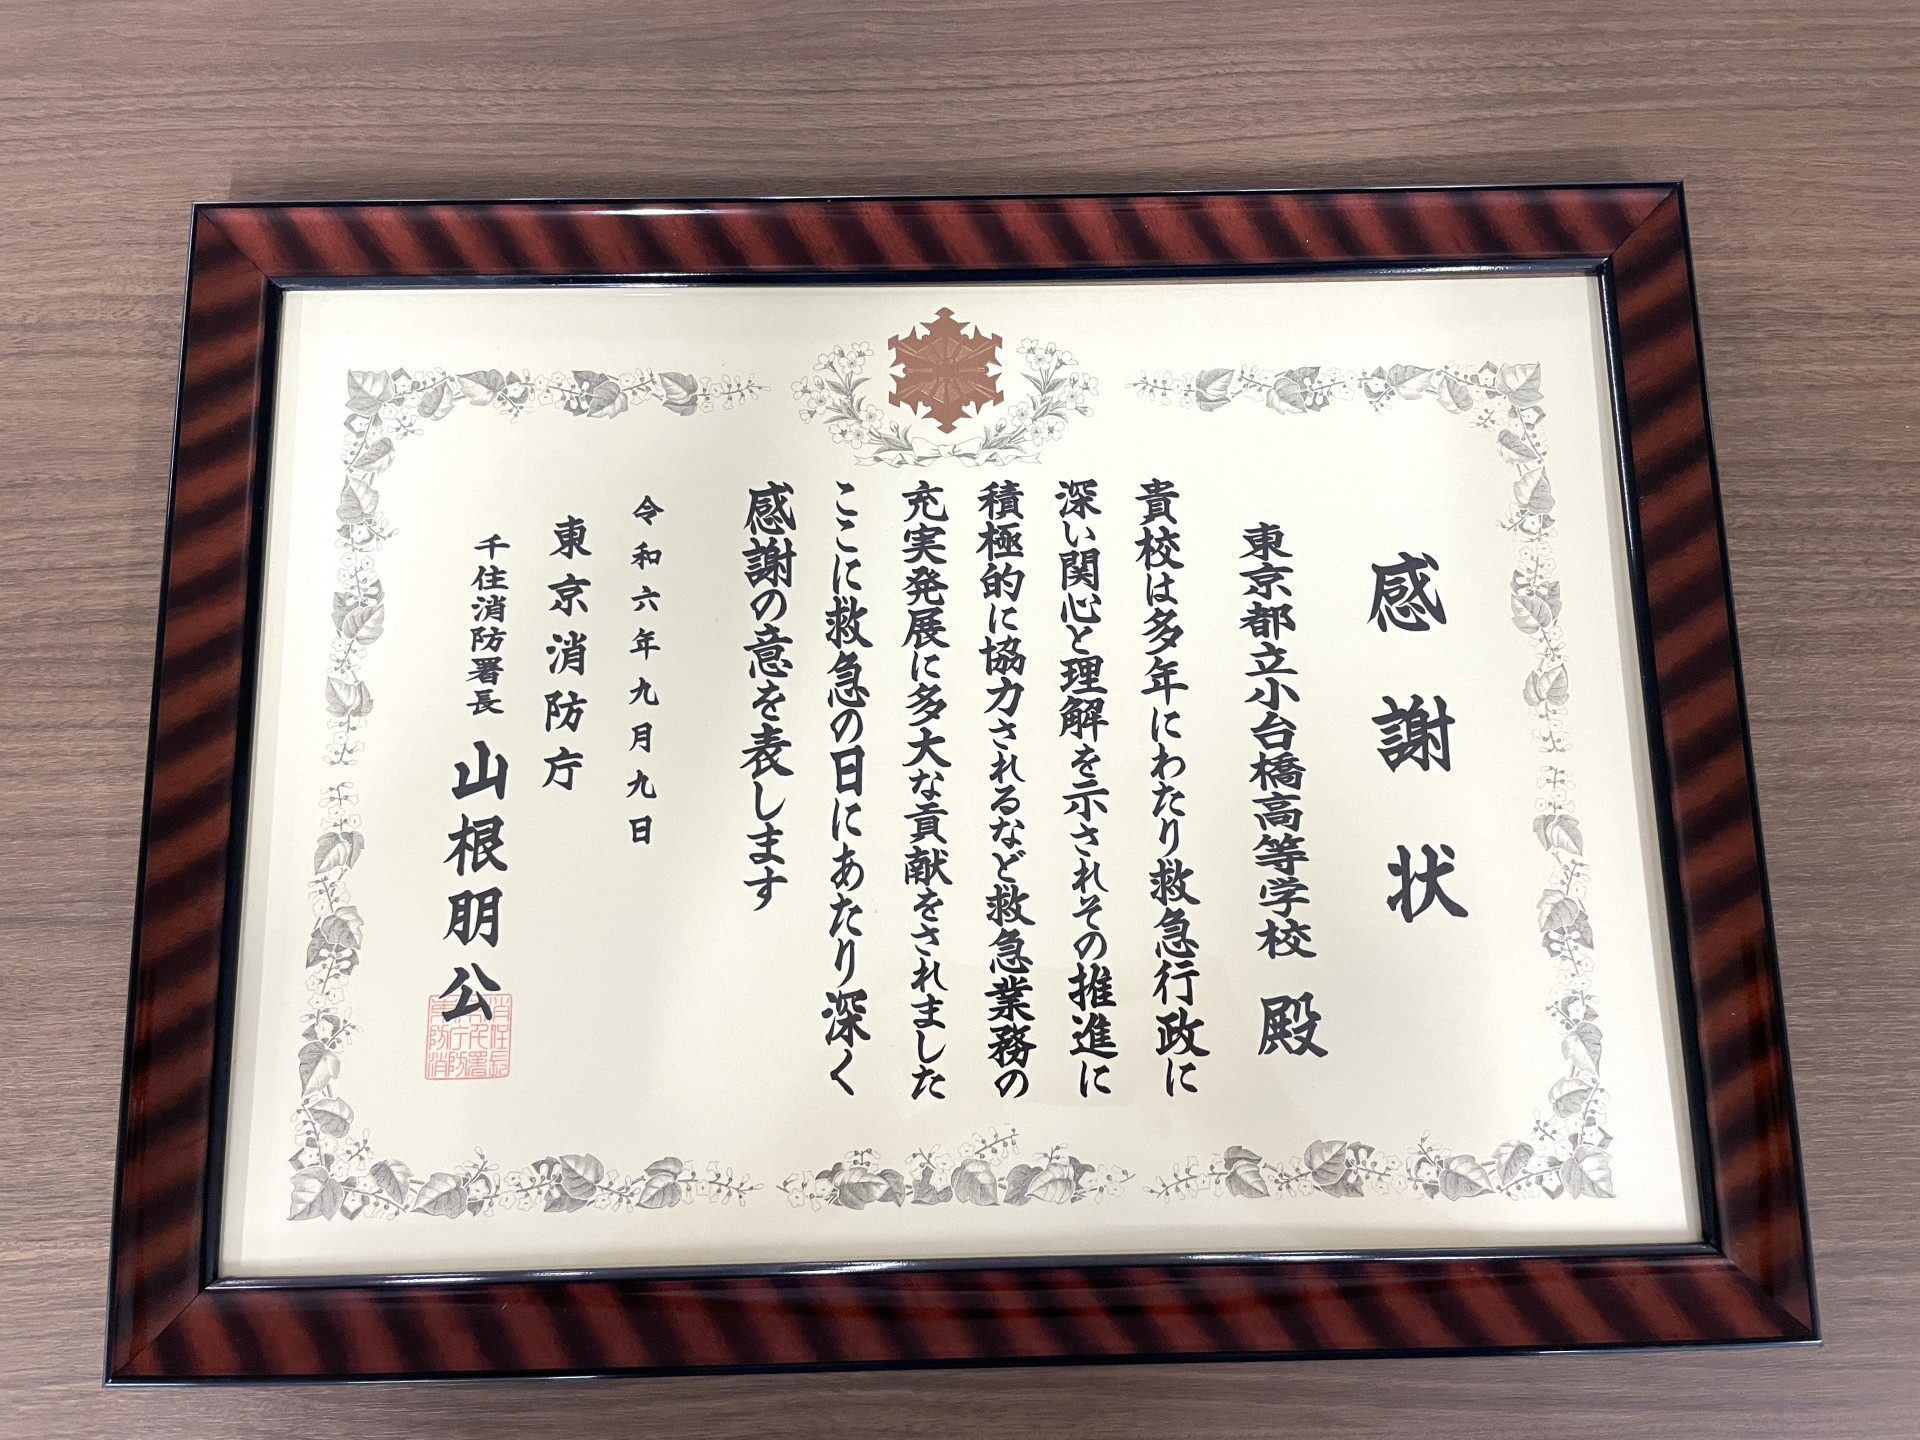 感謝状
東京都立小台橋高等学校 殿
貴校は多年にわたり救急行政に
深い関心と理解を示されその推進に
積極的に協力されるなど救急業務の
充実発展に多大な貢献をされました
ここに救急の日にあたり深く
感謝の意を表します
令和六年九月九日
東京消防庁
千住消防署長 山根朋公